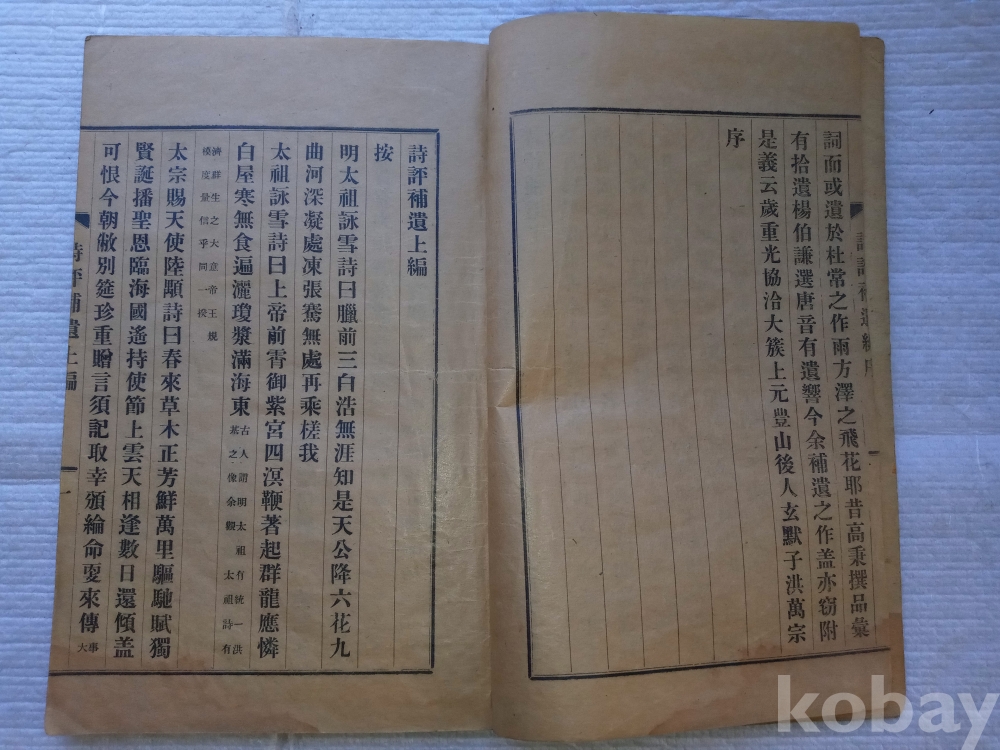 詞而或遺於杜常之作雨方澤之飛花耶昔高秉撰品彙
有拾遺楊伯謙選唐音有遺響今余補遺之作盖亦窃附
是義云歲重光協洽大簇上元豐山後人玄默子洪萬宗
序
詩評補遺上編
按
明太祖詠雪詩曰臘前三白浩無涯知是天公降六花九
曲河深凝處凍張騫無處再乘槎我
太祖詠雪詩曰上帝前霄御紫宮四溟鞭著起群龍應憐
白屋寒無食遍灑瓊漿滿海東
古人謂明太祖有統一
基之像余觀太祖詩有洪
濟群生之大意帝王規
模度量信乎同一揆
太宗賜天使陸顒詩曰春來草木正芳鮮萬里驅馳賦獨
賢誕播聖恩臨海國遙持使節上雲天相逢數日還傾盖
可恨今朝敝別筵珍重贈言須記取幸頒綸命更來傳
事大
詩評補遺上編
一
kobay